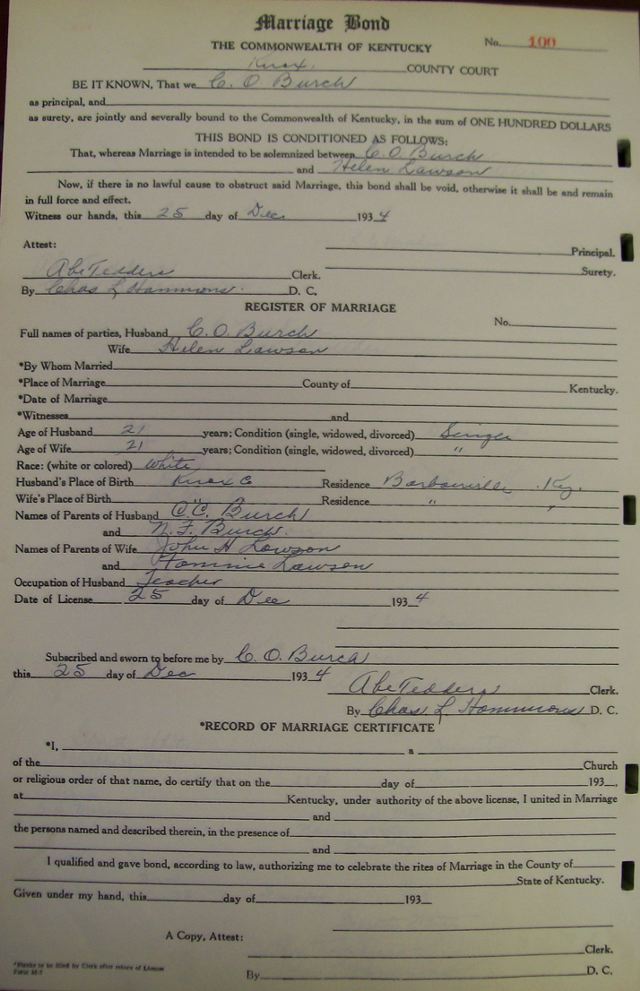 Marriage Bond
THE COMMONWEALTH OF KENTUCKY
No. 100
Knox COUNTY COURT
BE IT KNOWN, That we C. O. Burch
as principal, and
as surety, are jointly and severally bound to the Commonwealth of Kentucky, in the sum of ONE HUNDRED DOLLARS
THIS BOND IS CONDITIONED AS FOLLOWS:
That, whereas Marriage is intended to be solemnized between C. O. Burch
and Helen Lawson
Now, if there is no lawful cause to obstruct said Marriage, this bond shall be void, otherwise it shall be and remain
in full force and effect.
Witness our hands, this 25 day of Dec 1934
Attest:
Principal.
Abe Tedders Clerk. Surety.
By Chas L Hammons. D. C.
REGISTER OF MARRIAGE
No.
Full names of parties, Husband C. O. Burch
Wife Helen Lawson
*By Whom Married
*Place of Marriage County of Kentucky.
*Date of Marriage
*Witnesses and
Age of Husband 21 years; Condition (single, widowed, divorced) Single
Age of Wife 21 years; Condition (single, widowed, divorced) "
Race: (white or colored) White
Husband's Place of Birth Knox Co Residence Barbourville Ky.
Wife's Place of Birth " Residence " "
Names of Parents of Husband C. C. Burch
and N. F. Burch.
Names of Parents of Wife John H Lawson
and Lawson
Occupation of Husband Teacher
Date of License 25 day of Dec 1934
Subscribed and sworn to before me by C. O. Burch
this 25 day of Dec 1934
Abe Tedders Clerk.
By Chas L Hammons D. C.
*RECORD OF MARRIAGE CERTIFICATE
*I, a
of the Church
or religious order of that name, do certify that on the day of 193
at Kentucky, under authority of the above license, I united in Marriage
and
the persons named and described therein, in the presence of
and
I qualified and gave bond, according to law, authorizing me to celebrate the rites of Marriage in the County of
State of Kentucky.
Given under my hand, this day of 193
A Copy, Attest:
Clerk.
By D. C.
*Blanks to be filled by Clerk after return of License